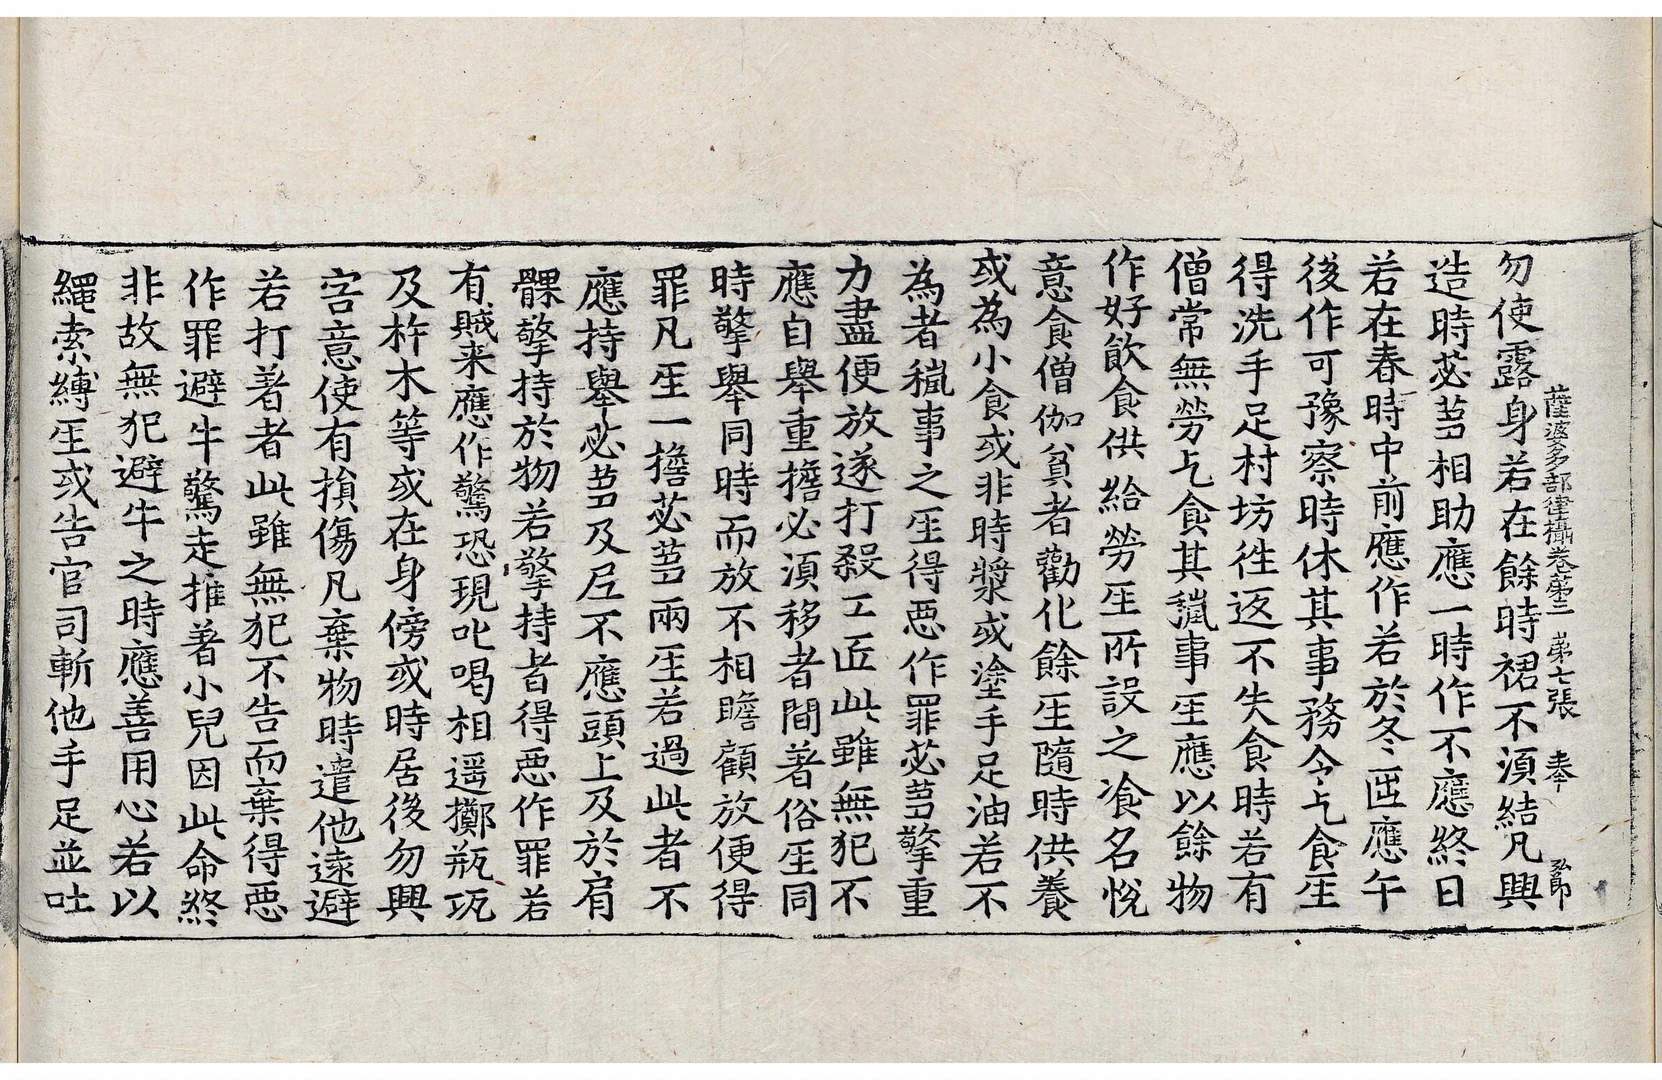 薩婆多部律攝卷第二　第七張　奉　弘郎
勿使露身若在餘時裙不湏結凡興
造時苾芻相助應一時作不應終日
若在春時中前應作若於冬迊應午
後作可豫察時休其事務令乞食生
得洗手足村坊徃返不失食時若有
僧常無勞乞食其穢事生應以餘物
作好飲食供給勞生所設之飡名悅
意食僧伽貧者勸化餘生隨時供養
或為小食或非時漿或塗手足油若不
為者穢事之生得惡作罪苾芻擎重
力盡便放遂打殺工匠此雖無犯不
應自舉重擔必湏移者間著俗生同
時擎舉同時而放不相瞻顧放便得
罪凡生一擔苾芻兩生若過此者不
應持舉苾芻及尼不應頭上及於肩
髁擎持於物若擎持者得惡作罪若
有賊来應作驚恐現叱喝相遥擲瓶瓨
及杵木等或在身傍或時居後勿興
害意使有損傷凡棄物時遣他遠避
若打著者此雖無犯不告而棄得惡
作罪避牛驚走推著小兒因此命終
非故無犯避牛之時應善用心若以
繩索縛生或告官司斬他手足並吐